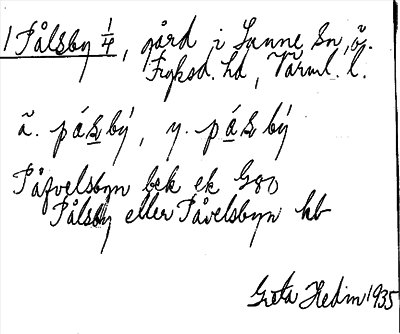 1 Pålsby 1/4, gård i Sunne Sn, ö.
Fryksd. hd, Värml. l.
ä. påsbý, y. påsbý
Påfvelsbyn bek ek G80
Pålsby eller Påvelsbyn kb
Greta Hedin 1935